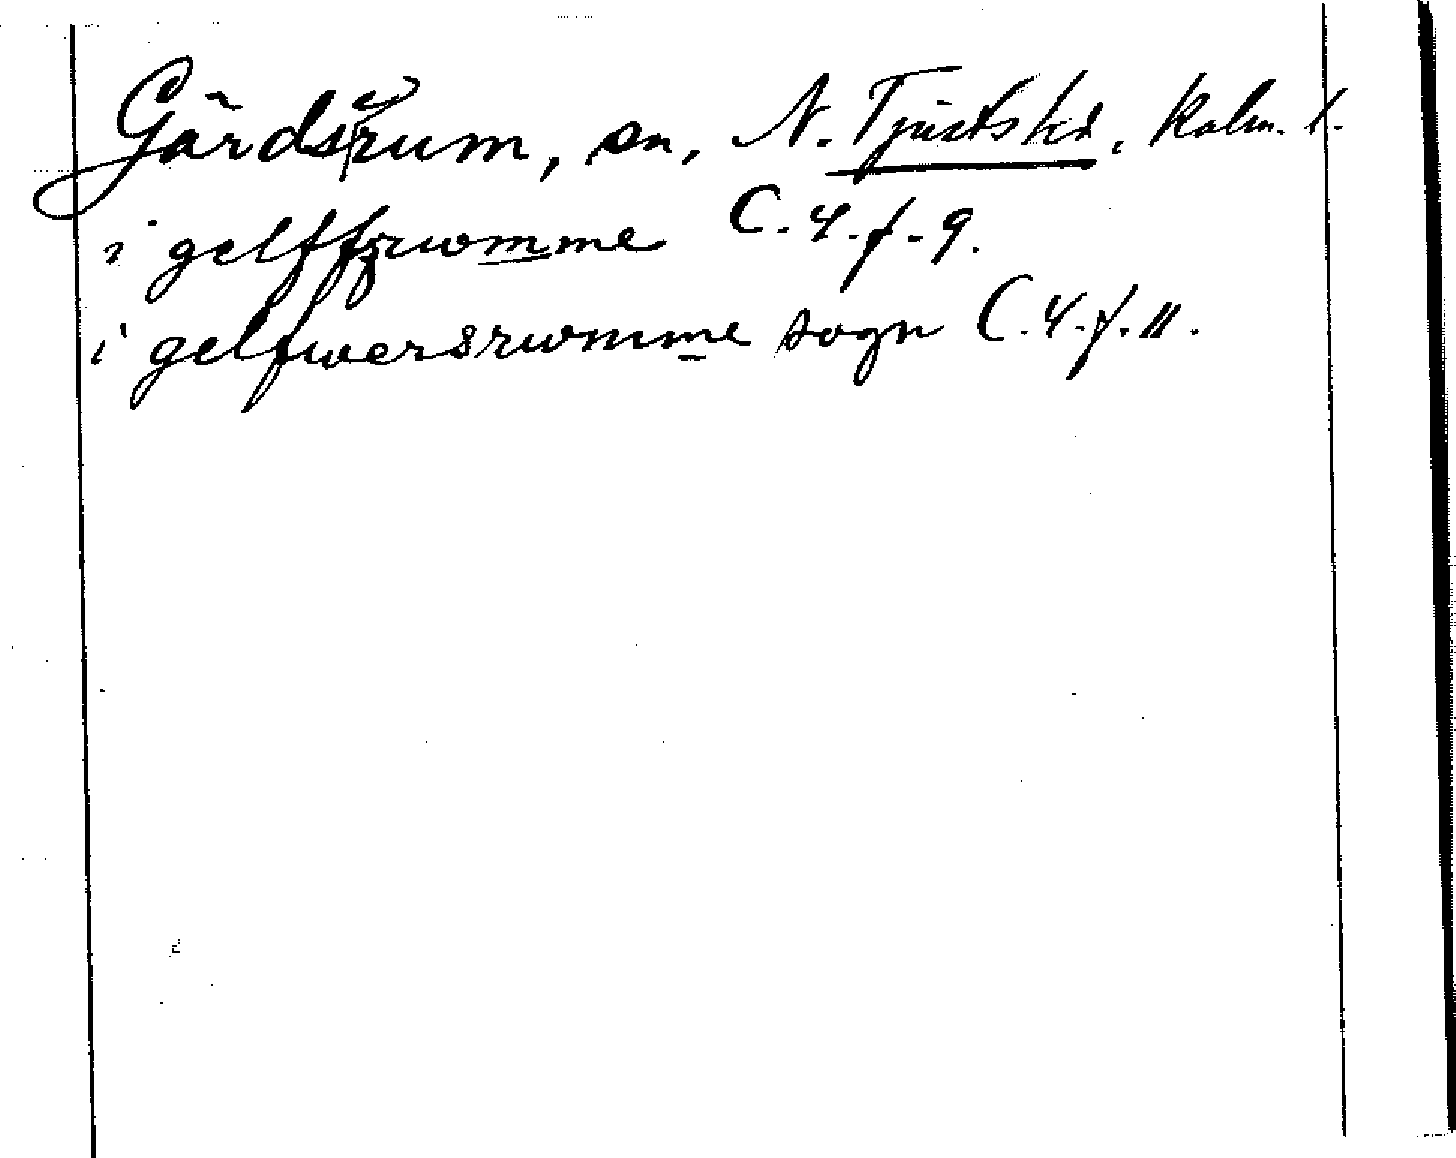 Gärdsrum, sn, N. Tjusts hd, Kalm. l.
i gelffzrwomme C. 4. f. 9.
i gelfwersrwmme sogn C. 4. f. 11.